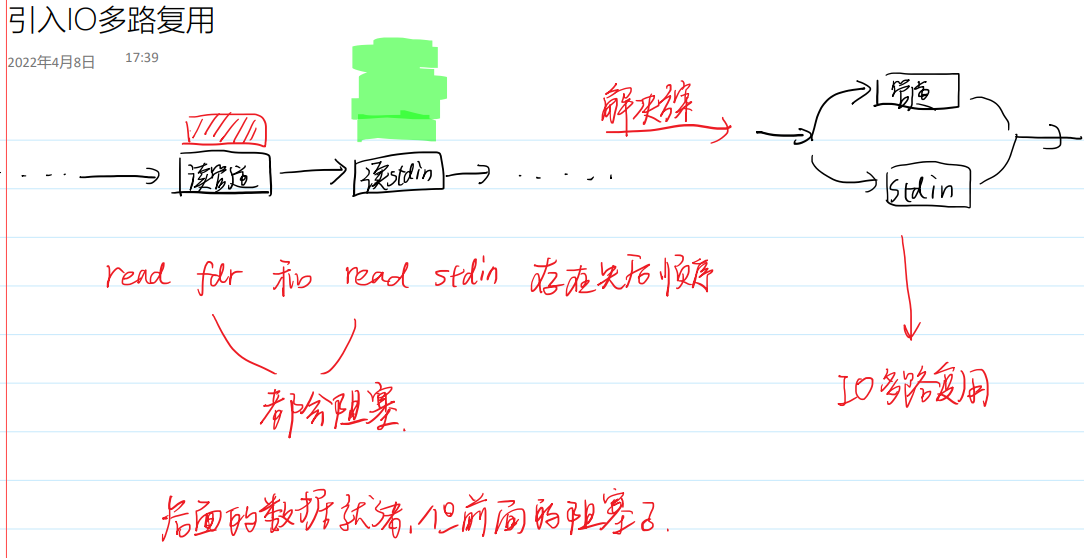 引入IO多路复用
2022年4月8日 17:39
解决方案
管道
读管道
读stdin
stdin
read fdr 和 read stdin 存在先后顺序
都会阻塞.
IO多路复用
后面的数据就绪,但前面的阻塞了.